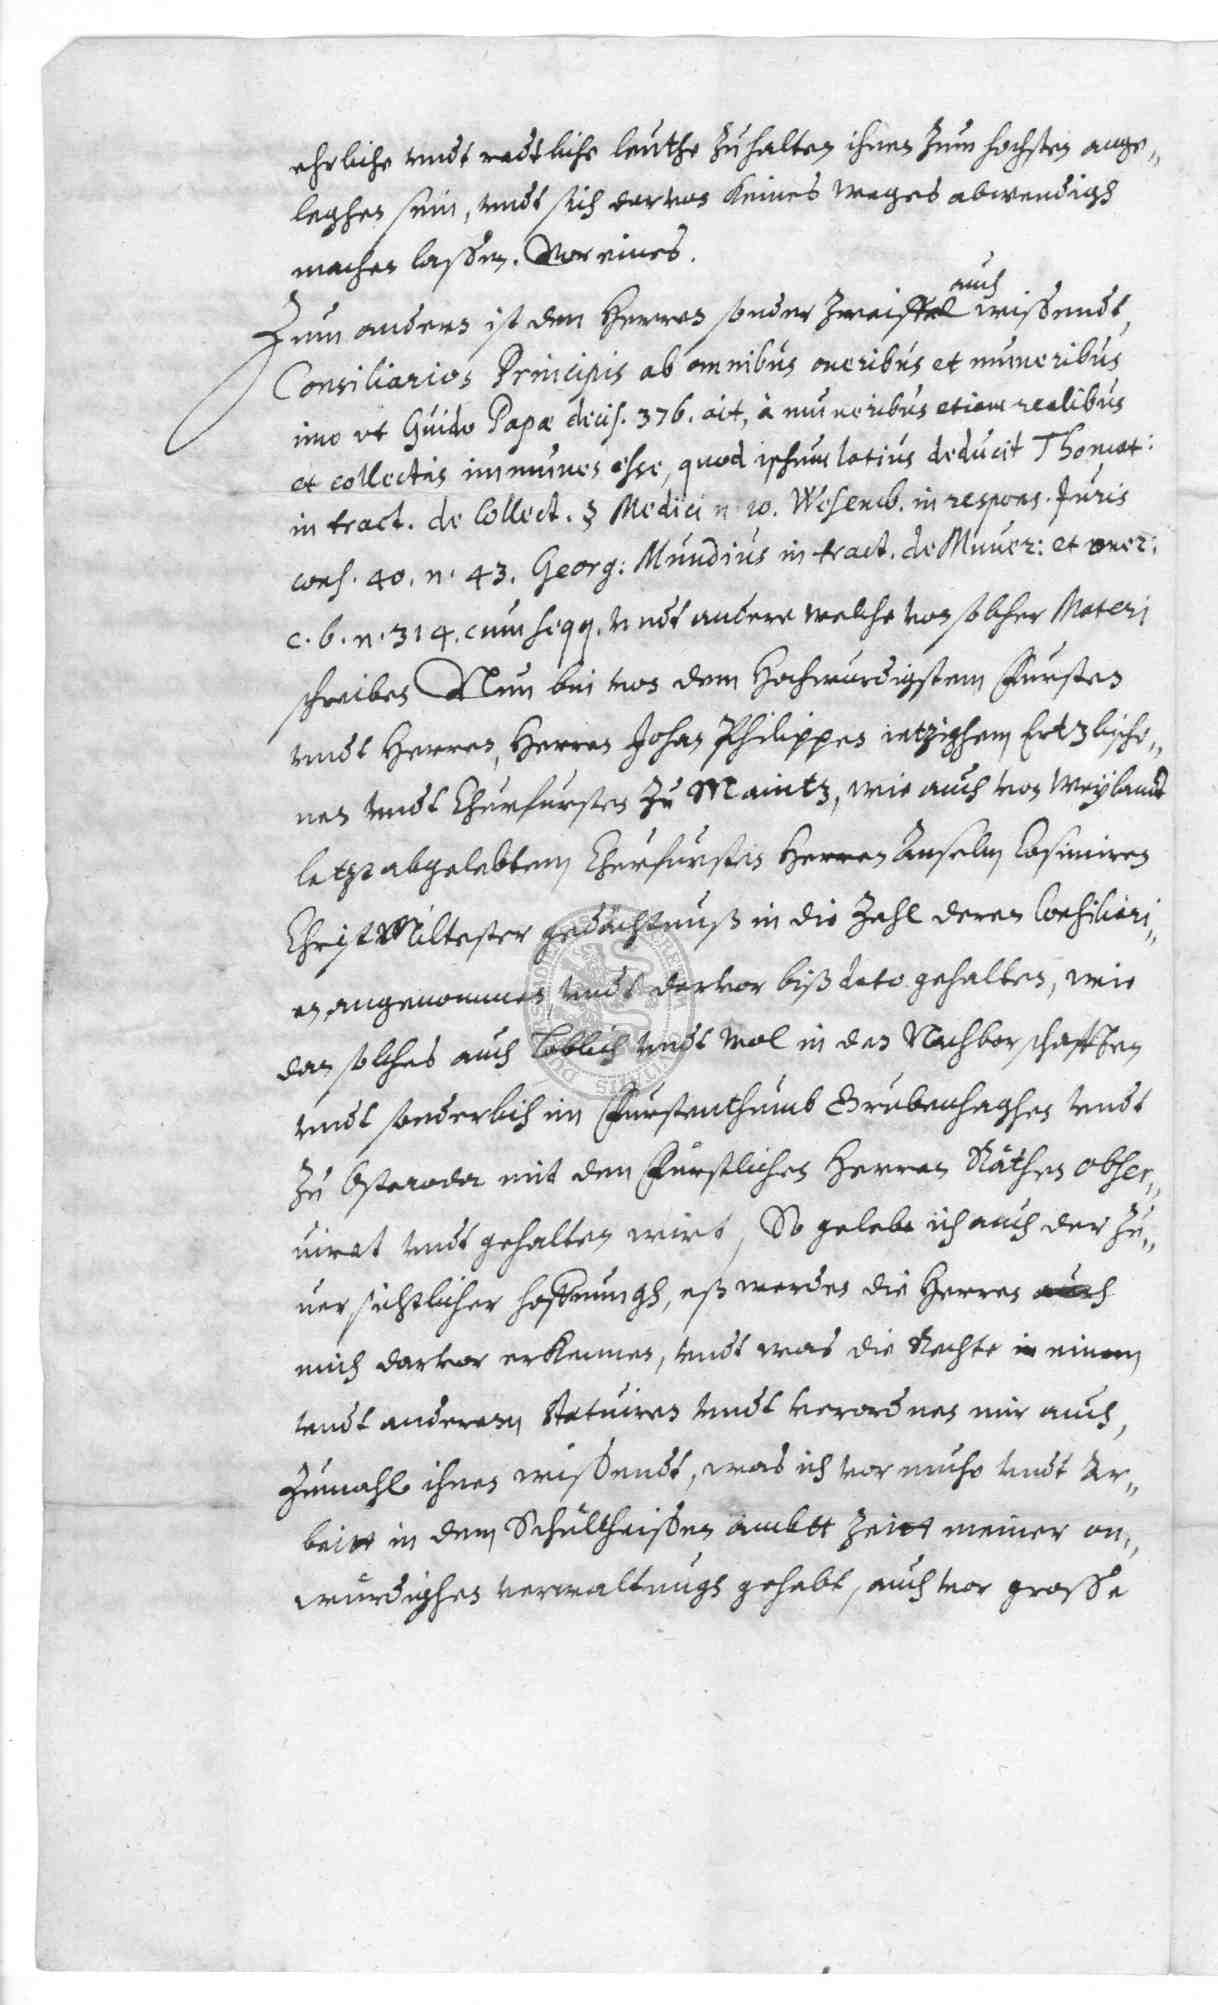 ehrliche undt redtliche leuthe zu halten ihnen zum hochsten ange„
leghen sein, undt sich darvon keines weges abwendigh
machen lassen. Vor eines.
auch
Zum anderen ist den Herren sonder zweiffel wissendt,
Consiliarios Principis ab omnibus oneribus et muneribus
imo ut Guido Papæ decis. 376. ait, à muneribus etiam realibus
et collectis immunes esse, quod ipsum latius deducit Thomat:
in tract. de Collect. § Medici n. 20. Wesenb. in respons. Juris
cons. 40. n. 43. Georg: Mundius in tract. de Muner: et oner:
c. 6. n. 314. cum seqq. undt andere welche von solcher Materi
schreiben Nun bin von dem Hochwurdigstem Fursten
undt Herren, Herren Johan Philippen ietzighem Ertzbischo„
nen undt Churfursten zu Maintz, wie auch von Weylandt
letzt abgelebtem Churfursten Herren Anselm Casimiren
Christ Miltester gedächtnuß in die Zahl deren Consiliari„
en angenommen, undt darvor biß dato gehalten, wie
dan solches auch loblich undt wol in den Nachborschafften
undt sonderlich im Furstenthumb Grubenhaghen undt
zu Osterode mit den Furstlichen Herren Räthen obser„
viret undt gehalten wirt, So gelebe ich auch der zu„
versichtlicher hoffnungh, eß werden die Herren auch
mich darvor erkennen, undt was die Rechte in einem
undt anderem statuiren undt verordnen mir auch,
zumahl ihnen wissendt, was ich vor muhe undt Ar„
beitt in dem Schultheissen ambtt zeitt meiner on„
wurdighen verwaltungh gehabt, auch vor grosse